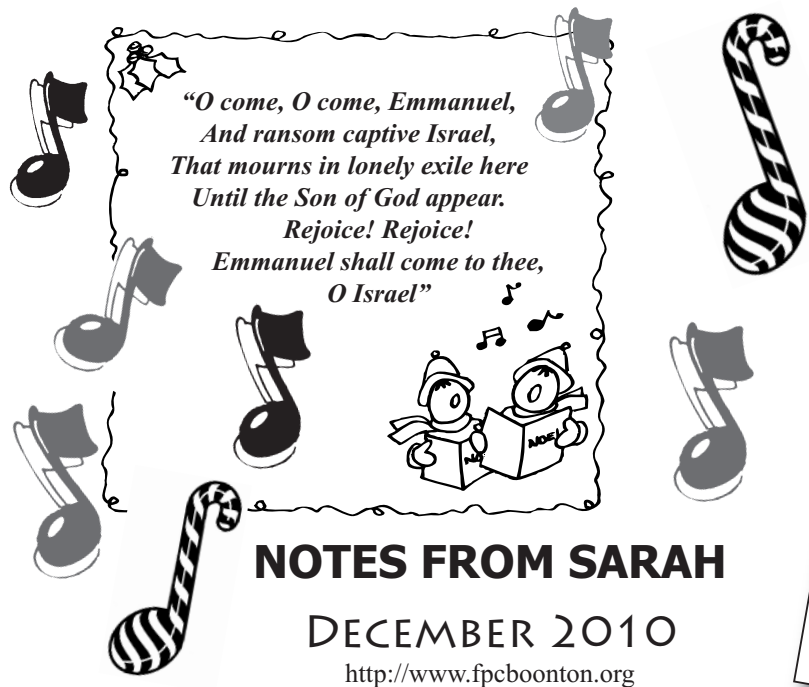 “O come, O come, Emmanuel,
And ransom captive Israel,
That mourns in lonely exile here
Until the Son of God appear.
Rejoice! Rejoice!
Emmanuel shall come to thee,
O Israel”
NO
NOEL
NOTES FROM SARAH
DECEMBER 2010
http://www.fpcboonton.org